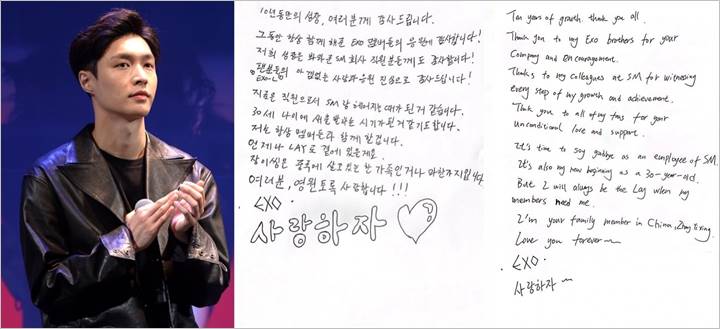 10년동안의 성장, 여러분께 감사드립니다.
그동안 항상 함께 해준 EXO 멤버들의 응원에 감사합니다!
저의 성장을 봐와준 SM 회사 직원분들께도 감사합니다!
팬분들의 아낌없는 사랑과 응원 진심으로 감사드립니다!
EXO-L
지금은 직원으로서 SM 랑 헤어지는 때가 된거 같습니다.
30세 나이에 새출발하는 시기가 된거 같기도합니다.
저는 항상 멤버들과 함께 할겁니다.
언제나 LAY로 곁에 있을게요.
장이씽은 중국에 살고있는 한 가족인거나 마찬가지입니다.
여러분, 영원토록 사랑합니다!!!
EXO.
사랑하자
Ten years of growth. thank you all.
Thank you to my Exo brothers for your
Company and encouragement.
Thanks to my colleagues at SM for witnessing
every step of my growth and achievement.
Thank you to all of my fans for your
unconditional love and support.
It's time to say goodbye as an employee of SM.
It's also my new beginning as a 30-year-old.
But I will always be the Lay when my
members need me.
I'm your family member in China, Zhang Yixing.
Love you forever~
EXO.
사랑하자~